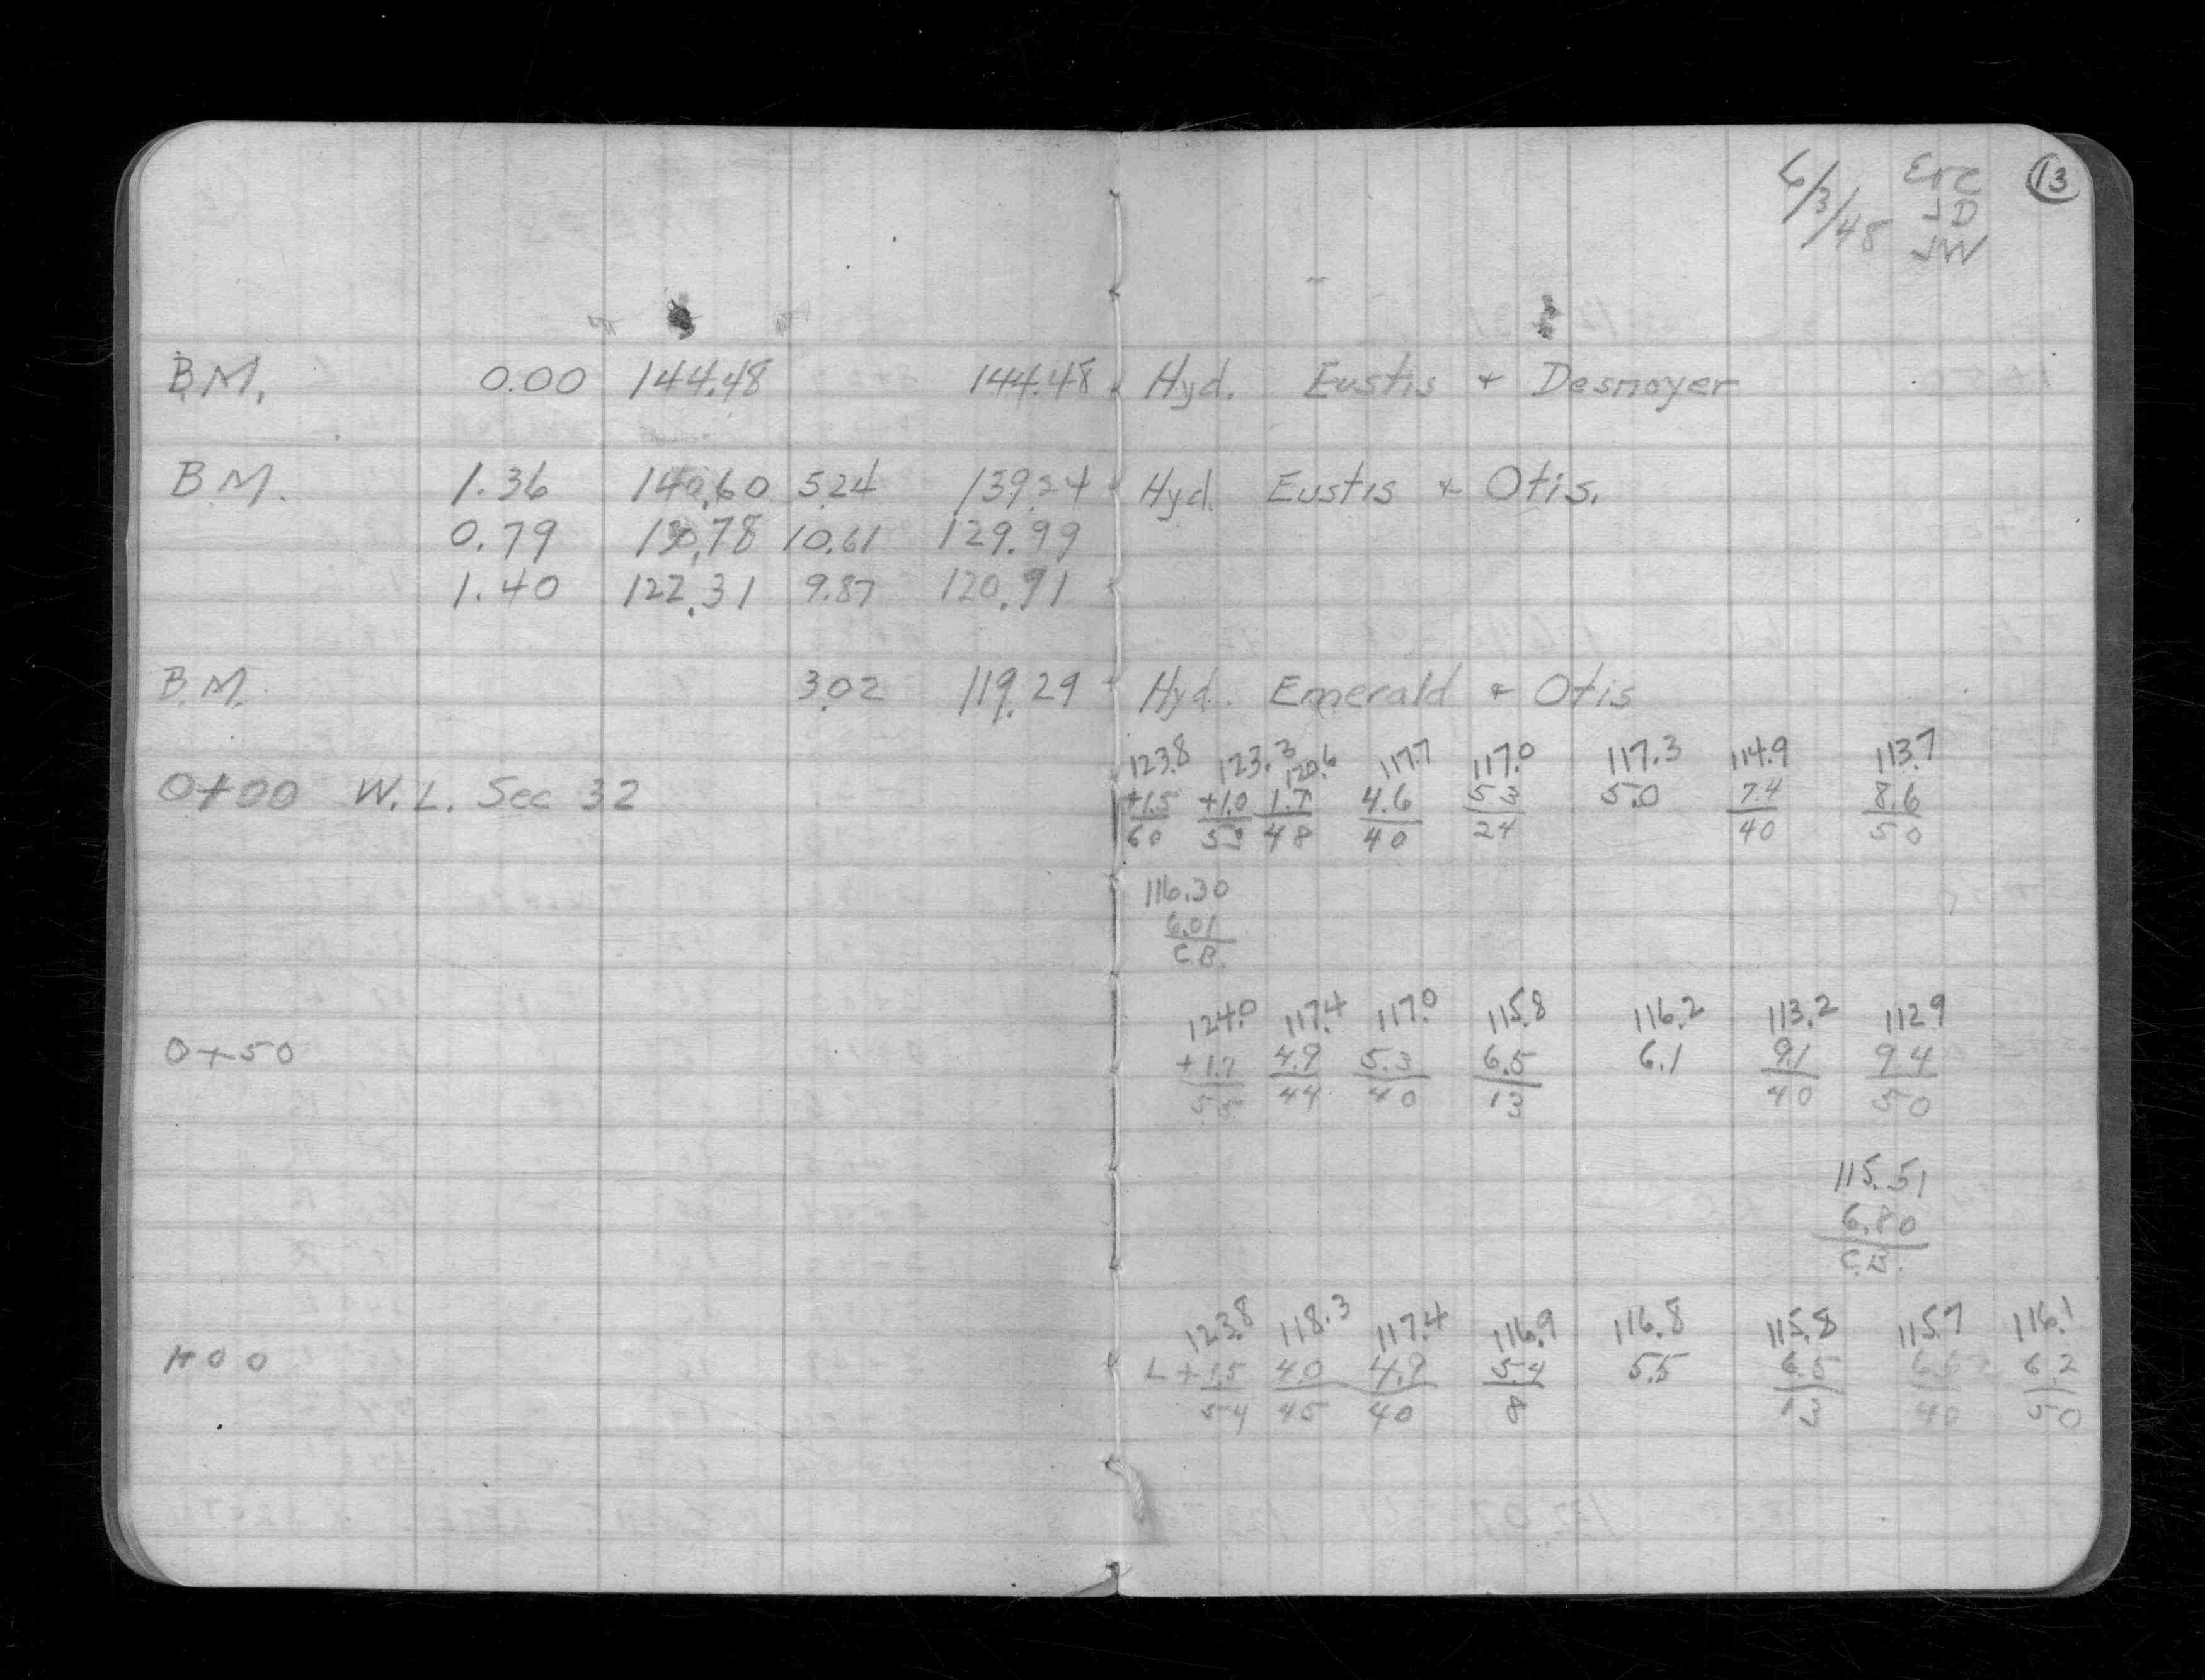 6/3/48 Erc 13
JD
JW
B.M. 0.00 144.48 144.48 Hyd. Eustis + Desnoyer
B.M. 1.36 140.60 5.24 139.24 Hyd. Eustis + Otis.
0.79 130.78 10.61 129.99
1.40 122.31 9.87 120.91
B.M. 3.02 119.29 Hyd. Emerald + Otis
123.8 123.3 120.6 117.7 117.0 117.3 114.9 113.7
0+00 W.L. Sec 32 +1.5 +1.0 1.7 4.6 5.3 5.0 7.4 8.6
60 53 48 40 24 40 50
116.30
6.01
C.B.
124.0 117.4 117.0 115.8 116.2 113.2 112.9
0+50 +1.7 4.9 5.3 6.5 6.1 9.1 9.4
55 44 40 13 40 50
115.51
6.80
C.B.
123.8 118.3 117.4 116.9 116.8 115.8 115.7 116.1
1+00 L +1.5 4.0 4.9 5.4 5.5 6.5 6.6 6.2
54 45 40 8 13 40 50